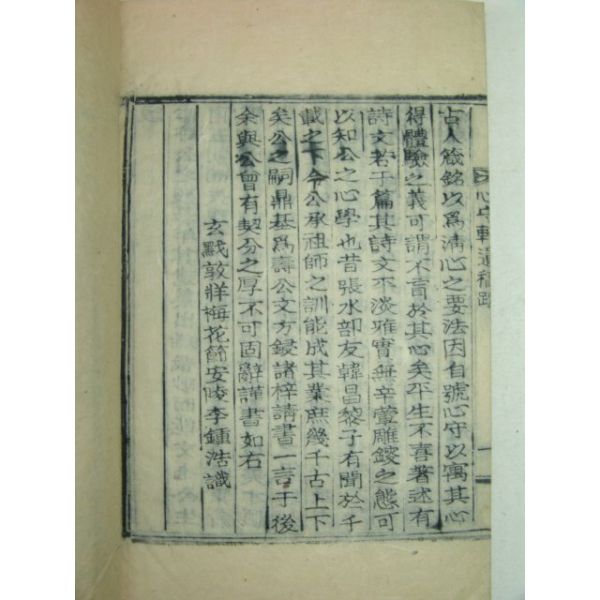 古人箴銘以爲淸心之要法因自號心守以寓其心
得體驗之義可謂不盲於其心矣平生不喜著述有
詩文若干篇其詩文平淡雅實無辛 雕鎪之態可
以知公之心學也昔張水部友韓昌黎子有聞於千
載之下今公承祖師之訓能成其業庶幾千古上下
矣公之嗣鼎基爲壽公文方鋟諸梓請書一言于後
余與公曾有契分之厚不可固辭謹書如右
玄黓敦牂梅花節安陵李鍾浩識
心守軒遺稿跋